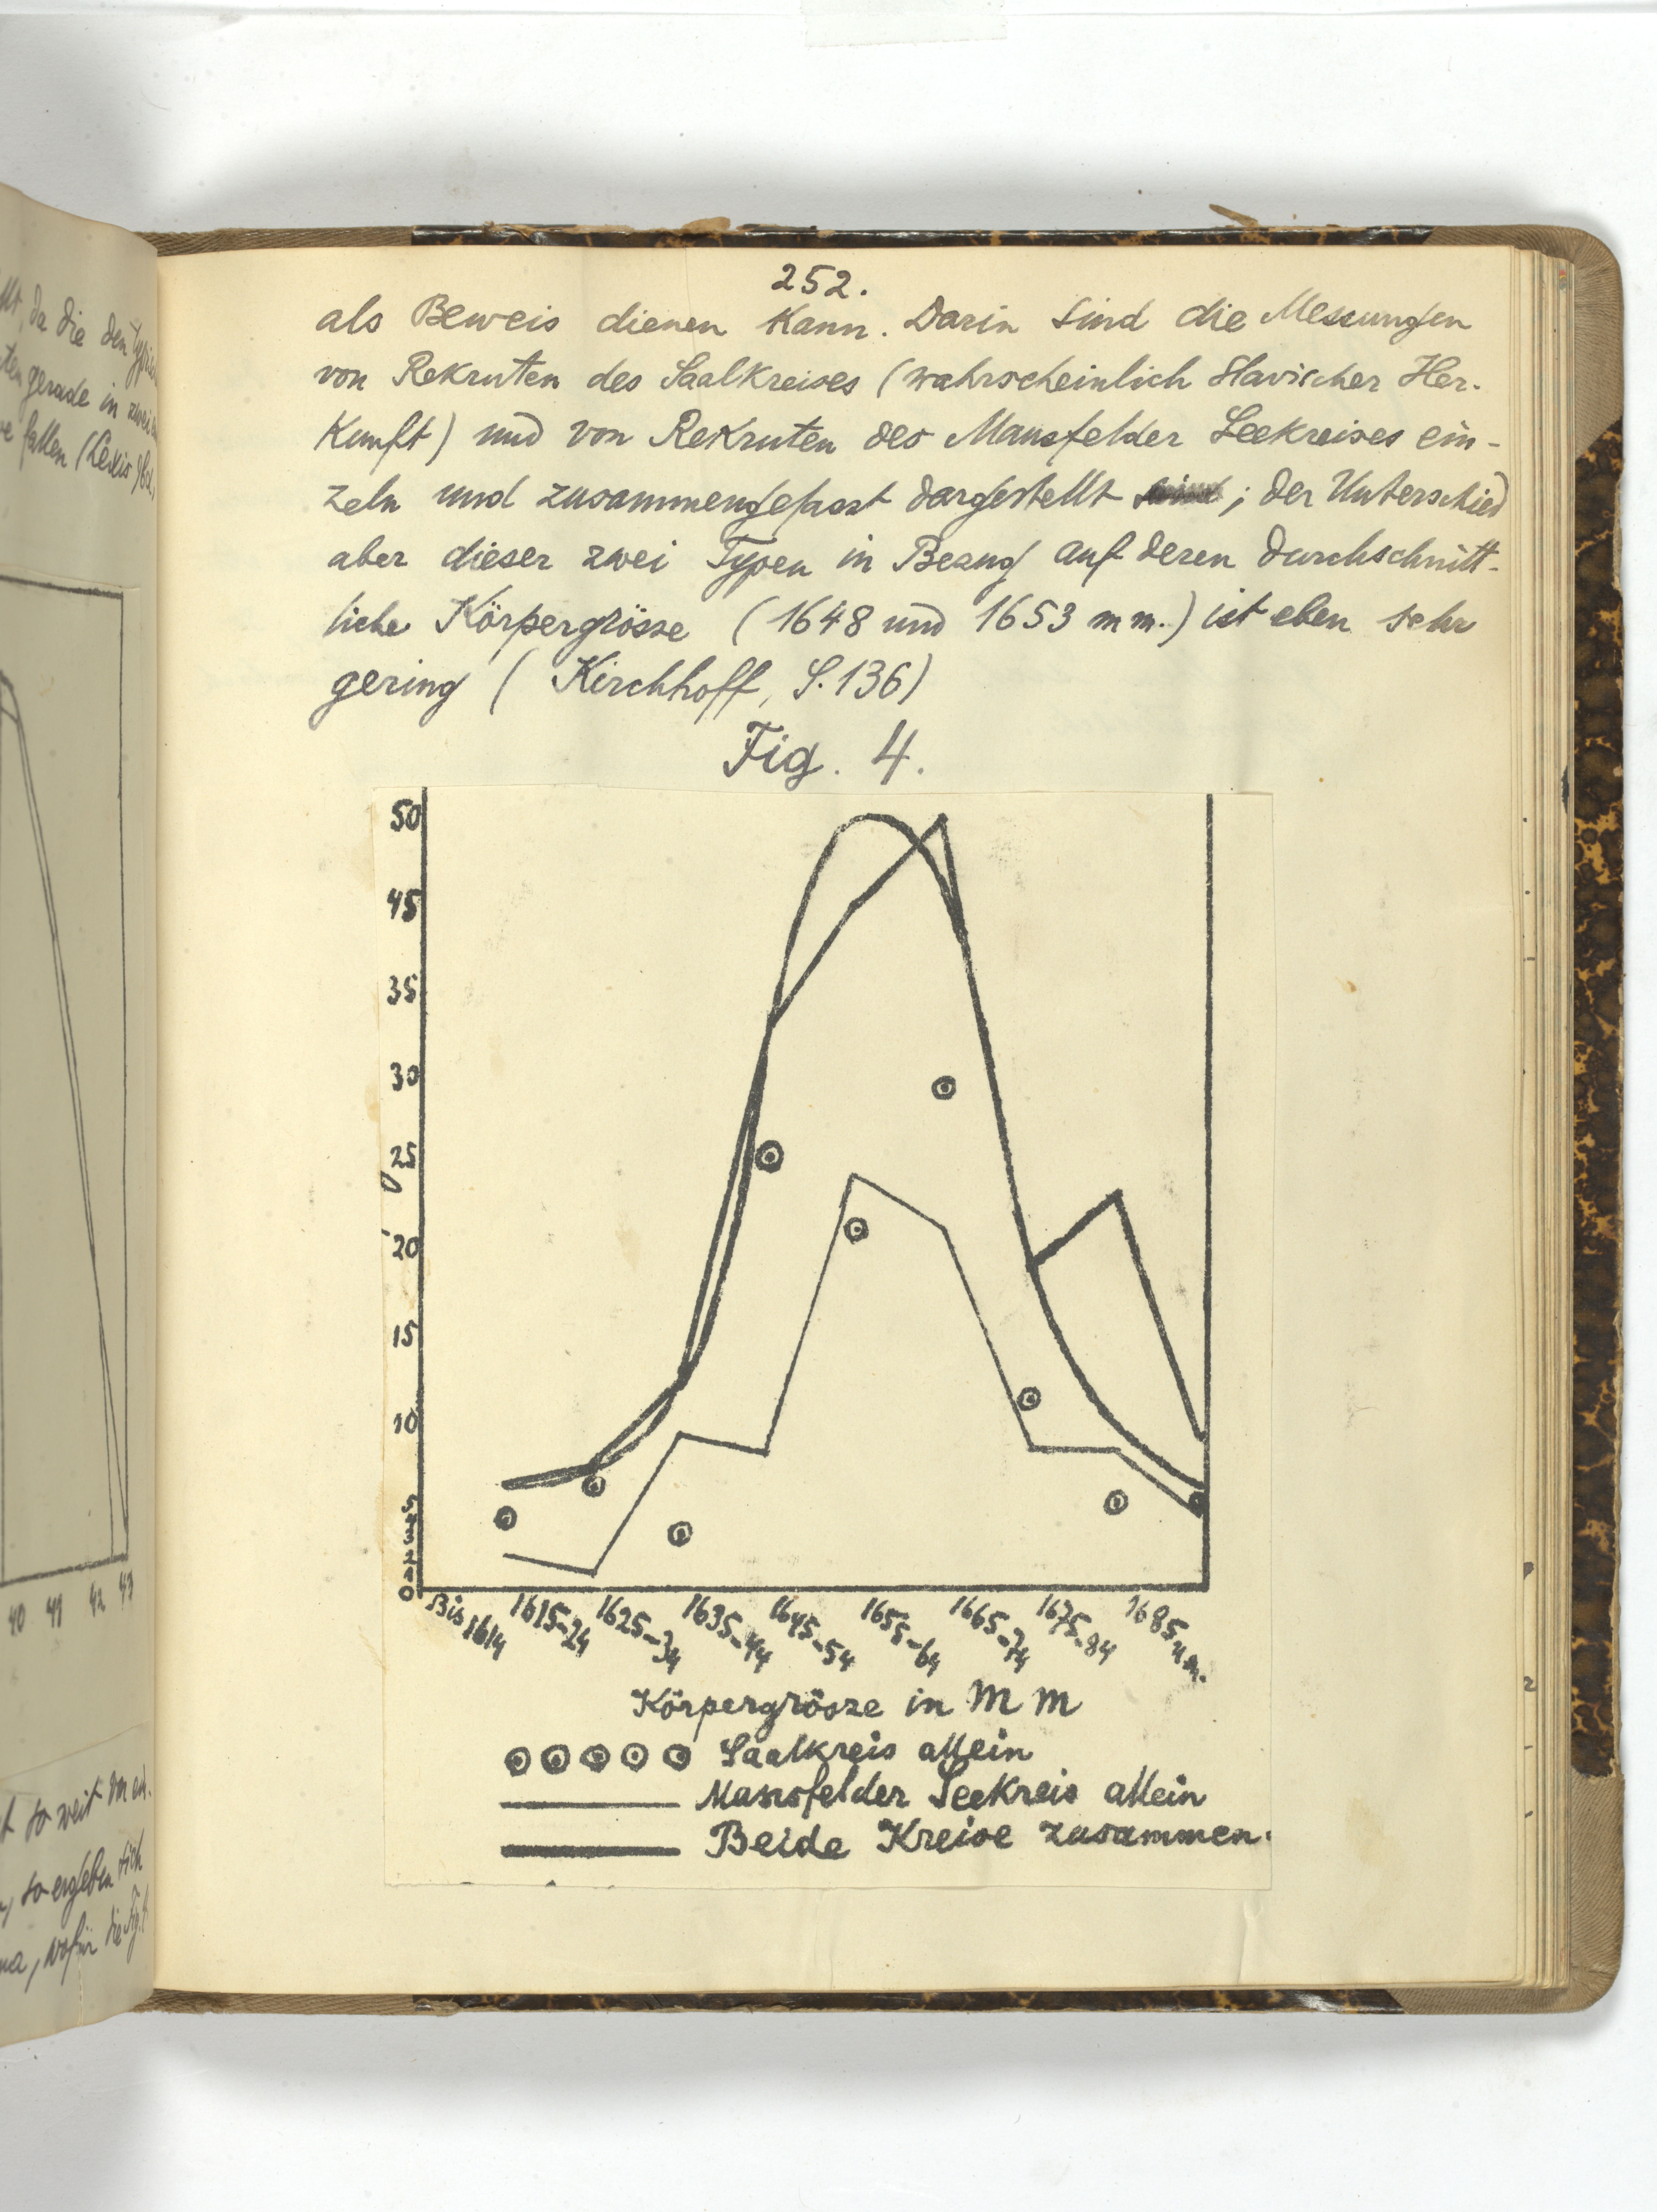 252.
als Beweis dienen Kann. Darin sind die Messungen
von Rekruten des Saalkreises (wahrscheinlich Slavischer Her-
Kunft) und von Rekruten des Mansfelder Seekreises ein-
zeln und zusammengefasst dargestellt ; der Unterschied
aber dieser zwei Typen in Bezug auf deren durchschnitt-
liche Körpergrösse (1648 und 1653 mm.) ist eben sehr
gering ( Kirchhoff, S. 136)
Fig. 4.
50
45
35
30
25
20
15
10
5
3
2
1
0
Bis 1614
1615-24
1625-34
1635-44
1645-54
1655-64
1665-74
1675-84
1685 u.m.
Körpergrösse in MM
Saalkreis allein
Mansfelder Seekreis allein
Beide Kreise zusammen.
da die den
gerade in zwei
fallen (Lexis
40 41 42 43
so weit
so ergeben sich
wofür die Fig.